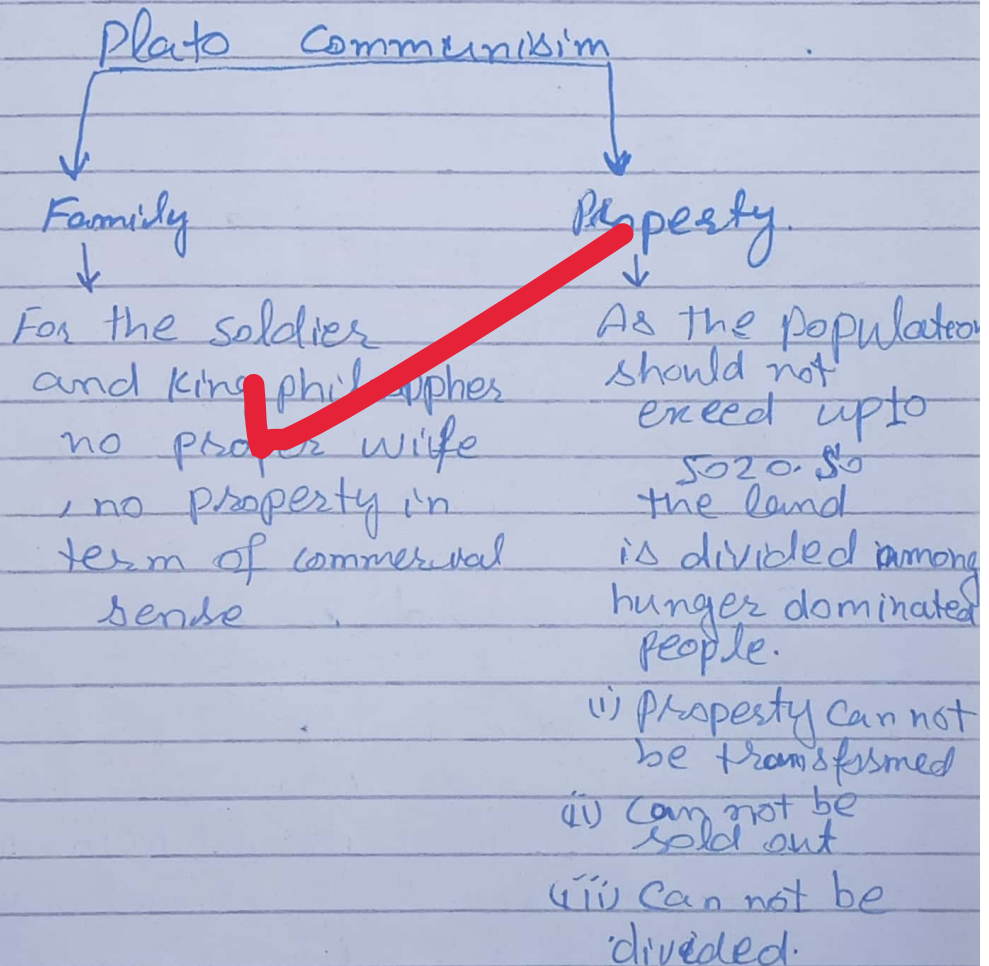 Plato Communisim
Family
For the soldier
and king philospher
no proper wife
, no property in
term of commercial
sense
Property.
As the population
should not
exeed upto
5020. So
the land
is divided among
hunger dominated
people.
(i) Property can not
be transformed
(ii) Can not be
sold out
(iii) Can not be
divided.